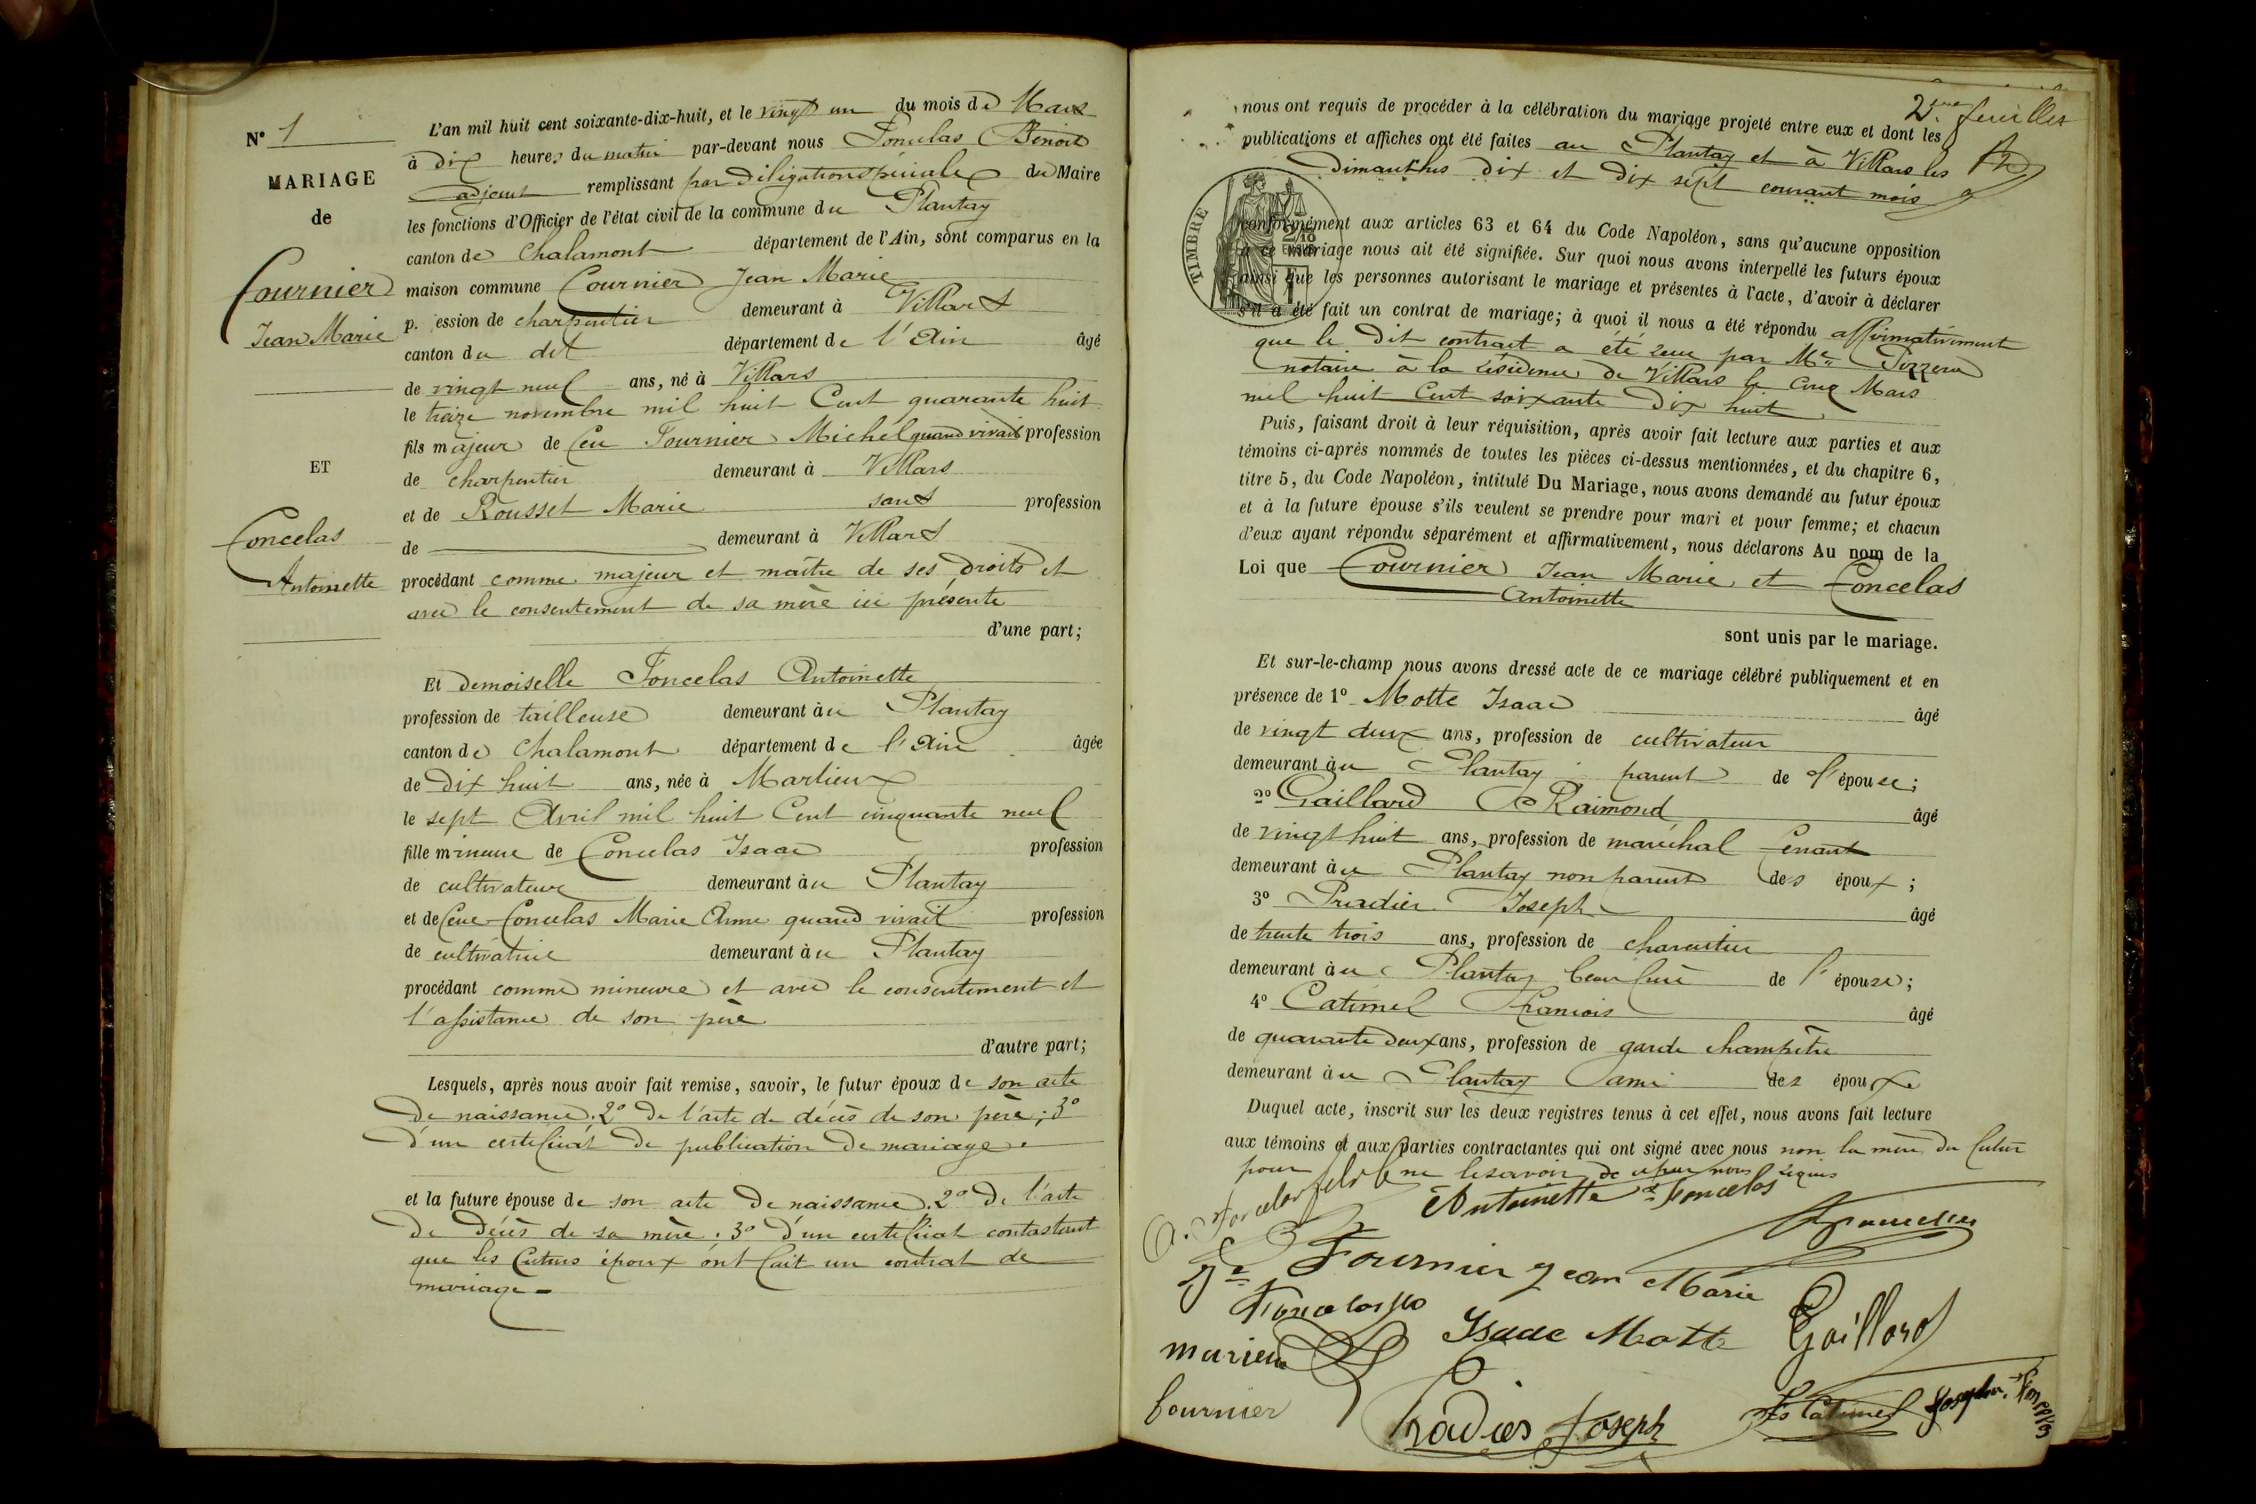 N° 1
MARIAGE
de
Fournier
Jean Marie
ET
Foncelas
Antoinette
L'an mil huit cent soixante-dix-huit, et le vingt un du mois de Mars
à dix heures du matin par-devant nous Foncelas Benoit
adjoint remplissant par déligation spéciale du Maire
les fonctions d'Officier de l'état civil de la commune du Plantay
canton de Chalamont département de l'Ain, sont comparus en la
maison commune Fournier Jean Marie
p. ession de charpentier demeurant à Villars
canton du dit département de l'Ain âgé
de vingt neuf ans, né à Villars
le treize novembre mil huit Cent quarante huit
fils majeur de feu Fournier Michel quand vivait profession
de charpentier demeurant à Villars
et de Rousset Marie sans profession
de demeurant à Villars
procédant comme majeur et maître de ses droits et
avec le consentement de sa mère ici présente
d'une part;
Et Demoiselle Foncelas Antoinette
profession de tailleuse demeurant au Plantay
canton de Chalamont département de l'Ain âgée
de Dix huit ans, née à Marlieux
le sept Avril mil huit Cent cinquante neuf
fille mineure de Foncelas Isaac profession
de cultivateur demeurant au Plantay
et de feue Foncelas Marie Anne quand vivait profession
de cultivatrice demeurant au Plantay
procédant comme mineure et avec le consentement et
l'assistance de son père
d'autre part;
Lesquels, après nous avoir fait remise, savoir, le futur époux de son acte
de naissance. 2° de l'acte de décès de son père; 3°
d'un certificat de publication de mariage.
et la future épouse de son acte de naissance. 2° de l'acte
de décès de sa mère. 3° d'un certificat contastant
que les futurs époux ont fait un contrat de
mariage
2me feuillet
nous ont requis de procéder à la célébration du mariage projeté entre eux et dont les
publications et affiches ont été faites au Plantay et à Villars les
Dimanches dix et dix sept courant mois
TIMBRE
2/10
EN SUS
conformément aux articles 63 et 64 du Code Napoléon, sans qu'aucune opposition
à ce mariage nous ait été signifiée. Sur quoi nous avons interpellé les futurs époux
ainsi que les personnes autorisant le mariage et présentes à l'acte, d'avoir à déclarer
s'il a été fait un contrat de mariage; à quoi il nous a été répondu affirmativement
que le dit contrait a été reçu par Me
notaire à la résidence de Villars le cinq Mars
mil huit Cent soixante Dix huit
Puis, faisant droit à leur réquisition, après avoir fait lecture aux parties et aux
témoins ci-après nommés de toutes les pièces ci-dessus mentionnées, et du chapitre 6,
titre 5, du Code Napoléon, intitulé Du Mariage, nous avons demandé au futur époux
et à la future épouse s'ils veulent se prendre pour mari et pour femme; et chacun
d'eux ayant répondu séparément et affirmativement, nous déclarons Au nom de la
Loi que Fournier Jean Marie et Foncelas
Antoinette
sont unis par le mariage.
Et sur-le-champ nous avons dressé acte de ce mariage célébré publiquement et en
présence de 1° Motte Isaac âgé
de vingt deux ans, profession de cultivateur
demeurant au Plantay parent de l'épouse;
2° Gaillard Raimond âgé
de vingt huit ans, profession de maréchal ferrant
demeurant au Plantay non parent des époux;
3° Pradier Joseph âgé
de trente trois ans, profession de charcutier
demeurant au Plantay beau frère de l'épouse;
4° Catimel François âgé
de quarante deux ans, profession de garde champêtre
demeurant au Plantay ami des époux
Duquel acte, inscrit sur les deux registres tenus à cet effet, nous avons fait lecture
aux témoins et aux parties contractantes qui ont signé avec nous non la mère du futur
pour ne le savoir de ce par nous requis
Antoinette Foncelas
Fournier Jean Marie
Isaac Motte
Gaillard
marieu
fournier
Pradier Joseph
fs Catimel